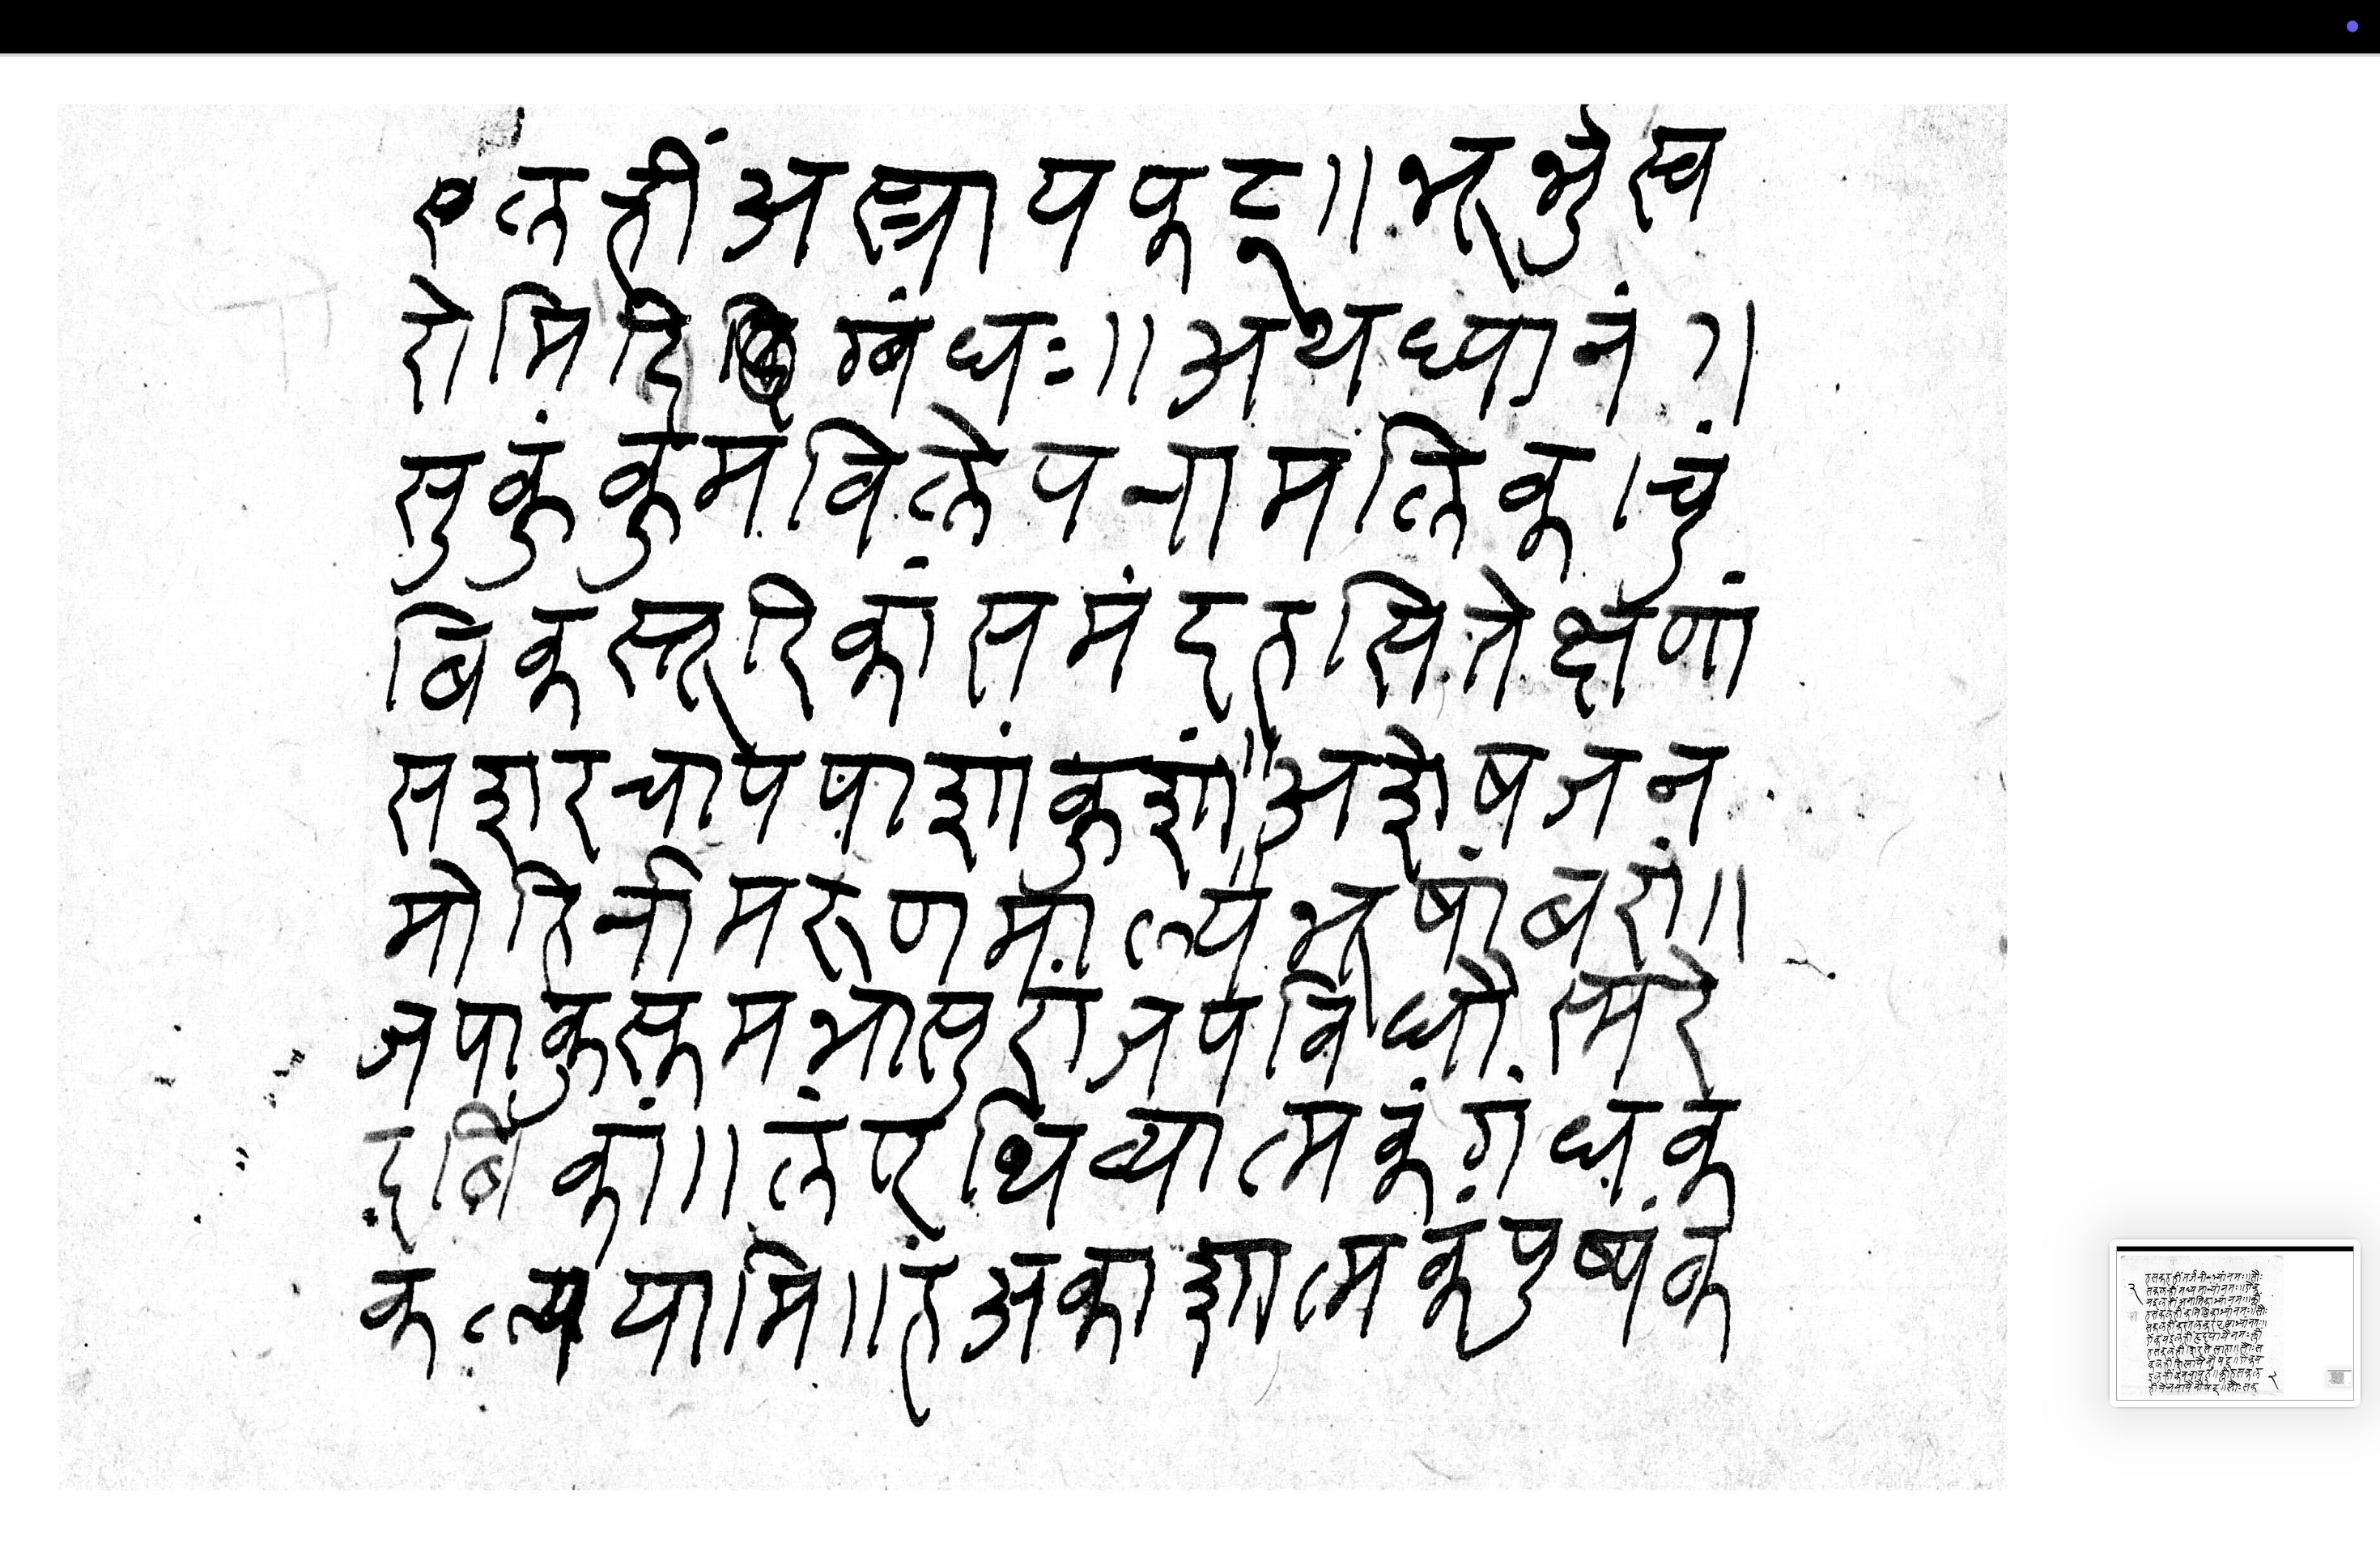 ल ह्रीं अस्त्रायफट्॥भूर्भुवस्व
रोमिति दिग्बंधः॥अथध्यानं॥
सुकुंकुमविलेपनामलिक।चुं
बिकस्तूरिकांसमंदहसितेक्षणां
सशरचापपाशांकुशां॥अशेषजन
मोहिनीमरुणमाल्यभूषांबरां॥
जपाकुसुमभासुरांजपविधौस्मरे
दंबिकां॥लंपृथिव्यात्मकंगंधक
कल्पयामि॥हंअकाशात्मकंपुष्पंक